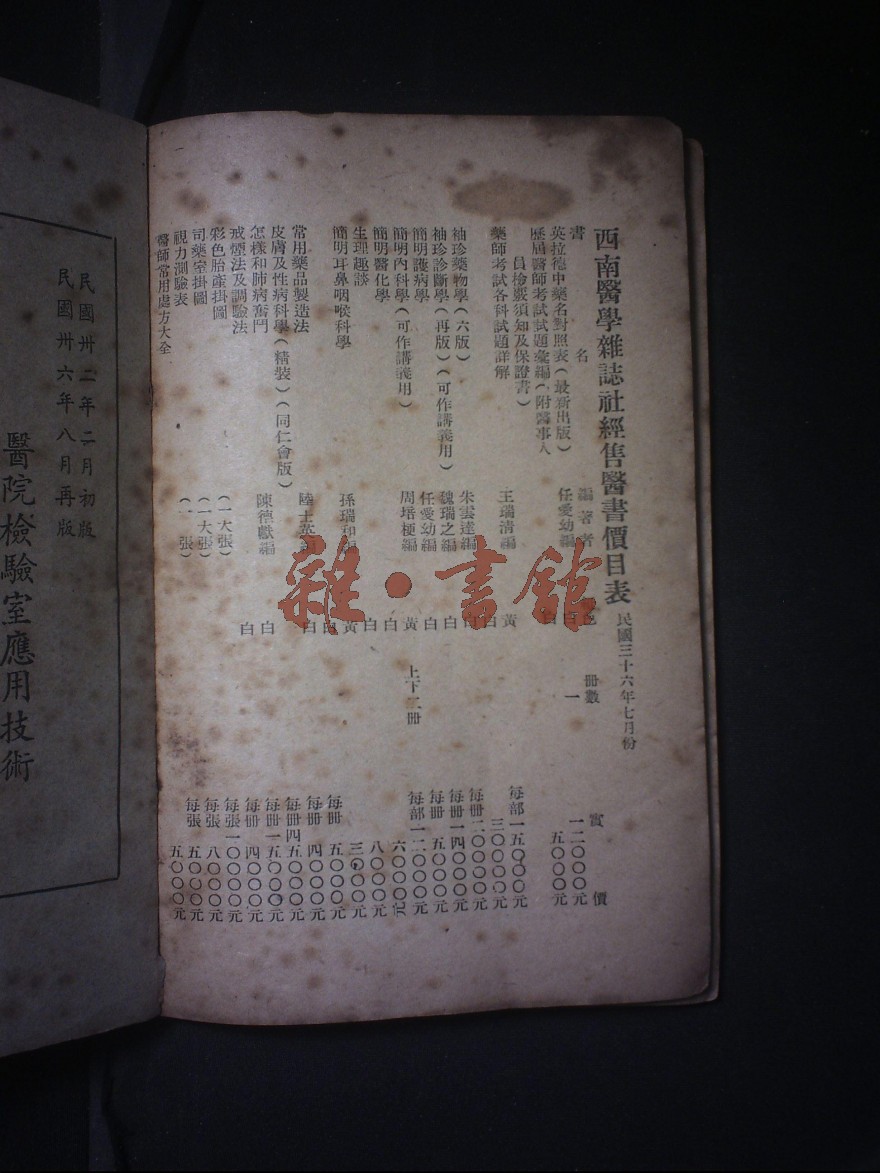 西南醫學雜誌社經售醫書價目表 民國三十六年七月份
書名 編著者 冊數 實價
英拉德中藥名對照表(最新出版) 任愛幼編 一 一二〇〇〇元
歷屆醫師考試試題彙編(附醫事人 五〇〇〇元
員檢覈須知及保證書)
藥師考試各科試題詳解 王瑞清編 黃 每部一五〇〇〇元
白 三〇〇〇元
袖珍藥物學(六版) 朱雲達編 白 每冊二〇〇〇〇元
袖珍診斷學(再版)(可作講義用) 魏瑞之編 白 每冊一四〇〇〇元
簡明護病學 任愛幼編 白 每冊五〇〇〇元
簡明內科學(可作講義用) 周培梗編 黃 上下二冊 每部一二〇〇〇元
簡明醫化學 白 六〇〇〇元
生理趣談 白 八〇〇〇元
簡明耳鼻咽喉科學 孫瑞和編 黃 三〇〇〇元
白 每冊五〇〇〇元
常用藥品製造法 陸士英編 白 每冊四〇〇〇元
皮膚及性病科學(精裝)(同仁會版) 每冊四五〇〇〇元
怎樣和肺病奮鬥 陳德獻編 白 每冊一五〇〇〇元
戒煙法及調驗法 白 每冊四〇〇〇元
彩色胎產掛圖 (一大張) 每張一〇〇〇〇元
司藥室掛圖 (一大張) 每張八〇〇〇元
視力測驗表 (一張) 每張五〇〇〇元
醫師常用處方大全 五〇〇〇元
民國卅二年二月初版
民國卅六年八月再版
醫院檢驗室應用技術
雜·書館